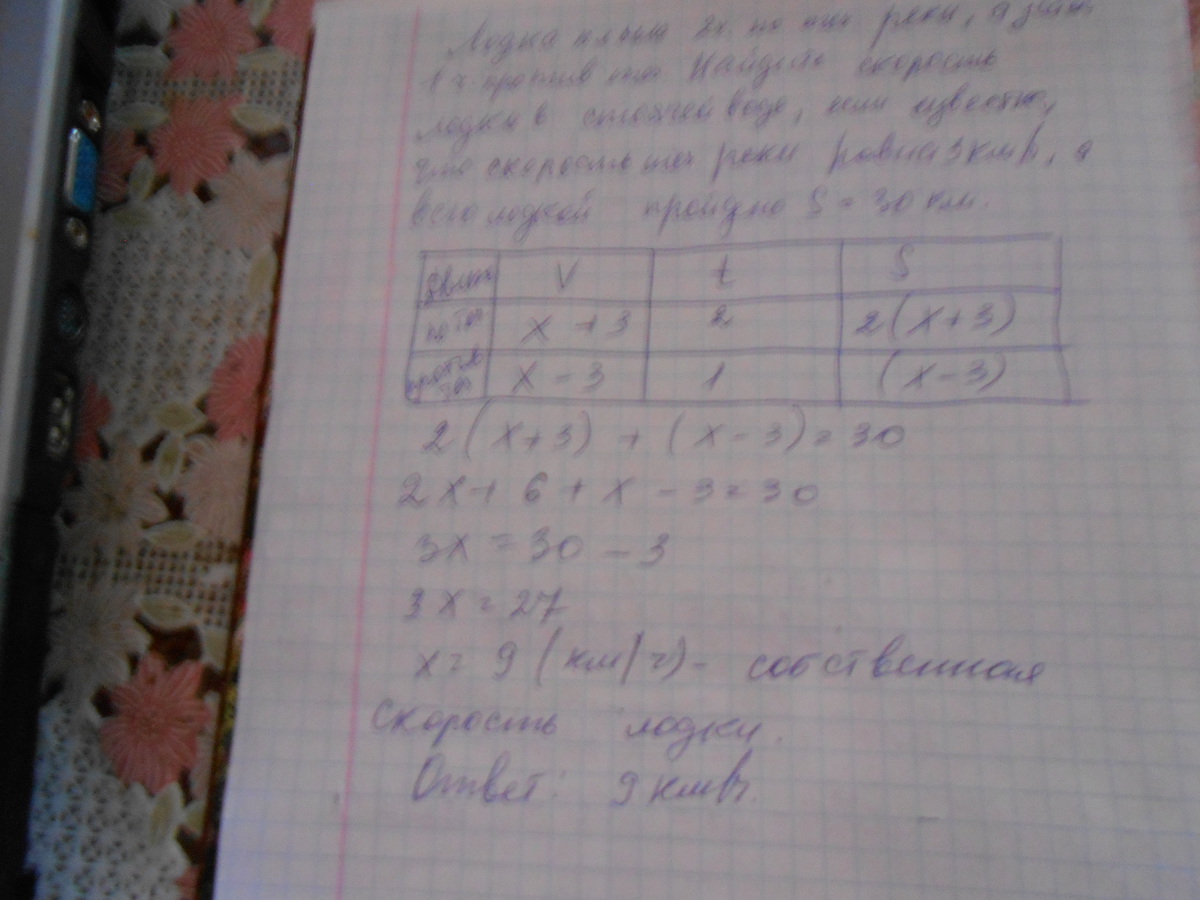 Лодка плыла 2ч. по теч реки, а затем
1 ч против теч Найдите скорость
лодки в стоячей воде, если известно,
что скорость теч реки равна 3 км/ч, а
всего лодкой пройдено S = 30 км.
V t S
по теч x + 3 2 2(x+3)
против теч x - 3 1 (x-3)
2(x+3) + (x-3) = 30
2x + 6 + x - 3 = 30
3x = 30 - 3
3x = 27
x = 9 (км/ч) - собственная
скорость лодки.
Ответ: 9 км/ч.